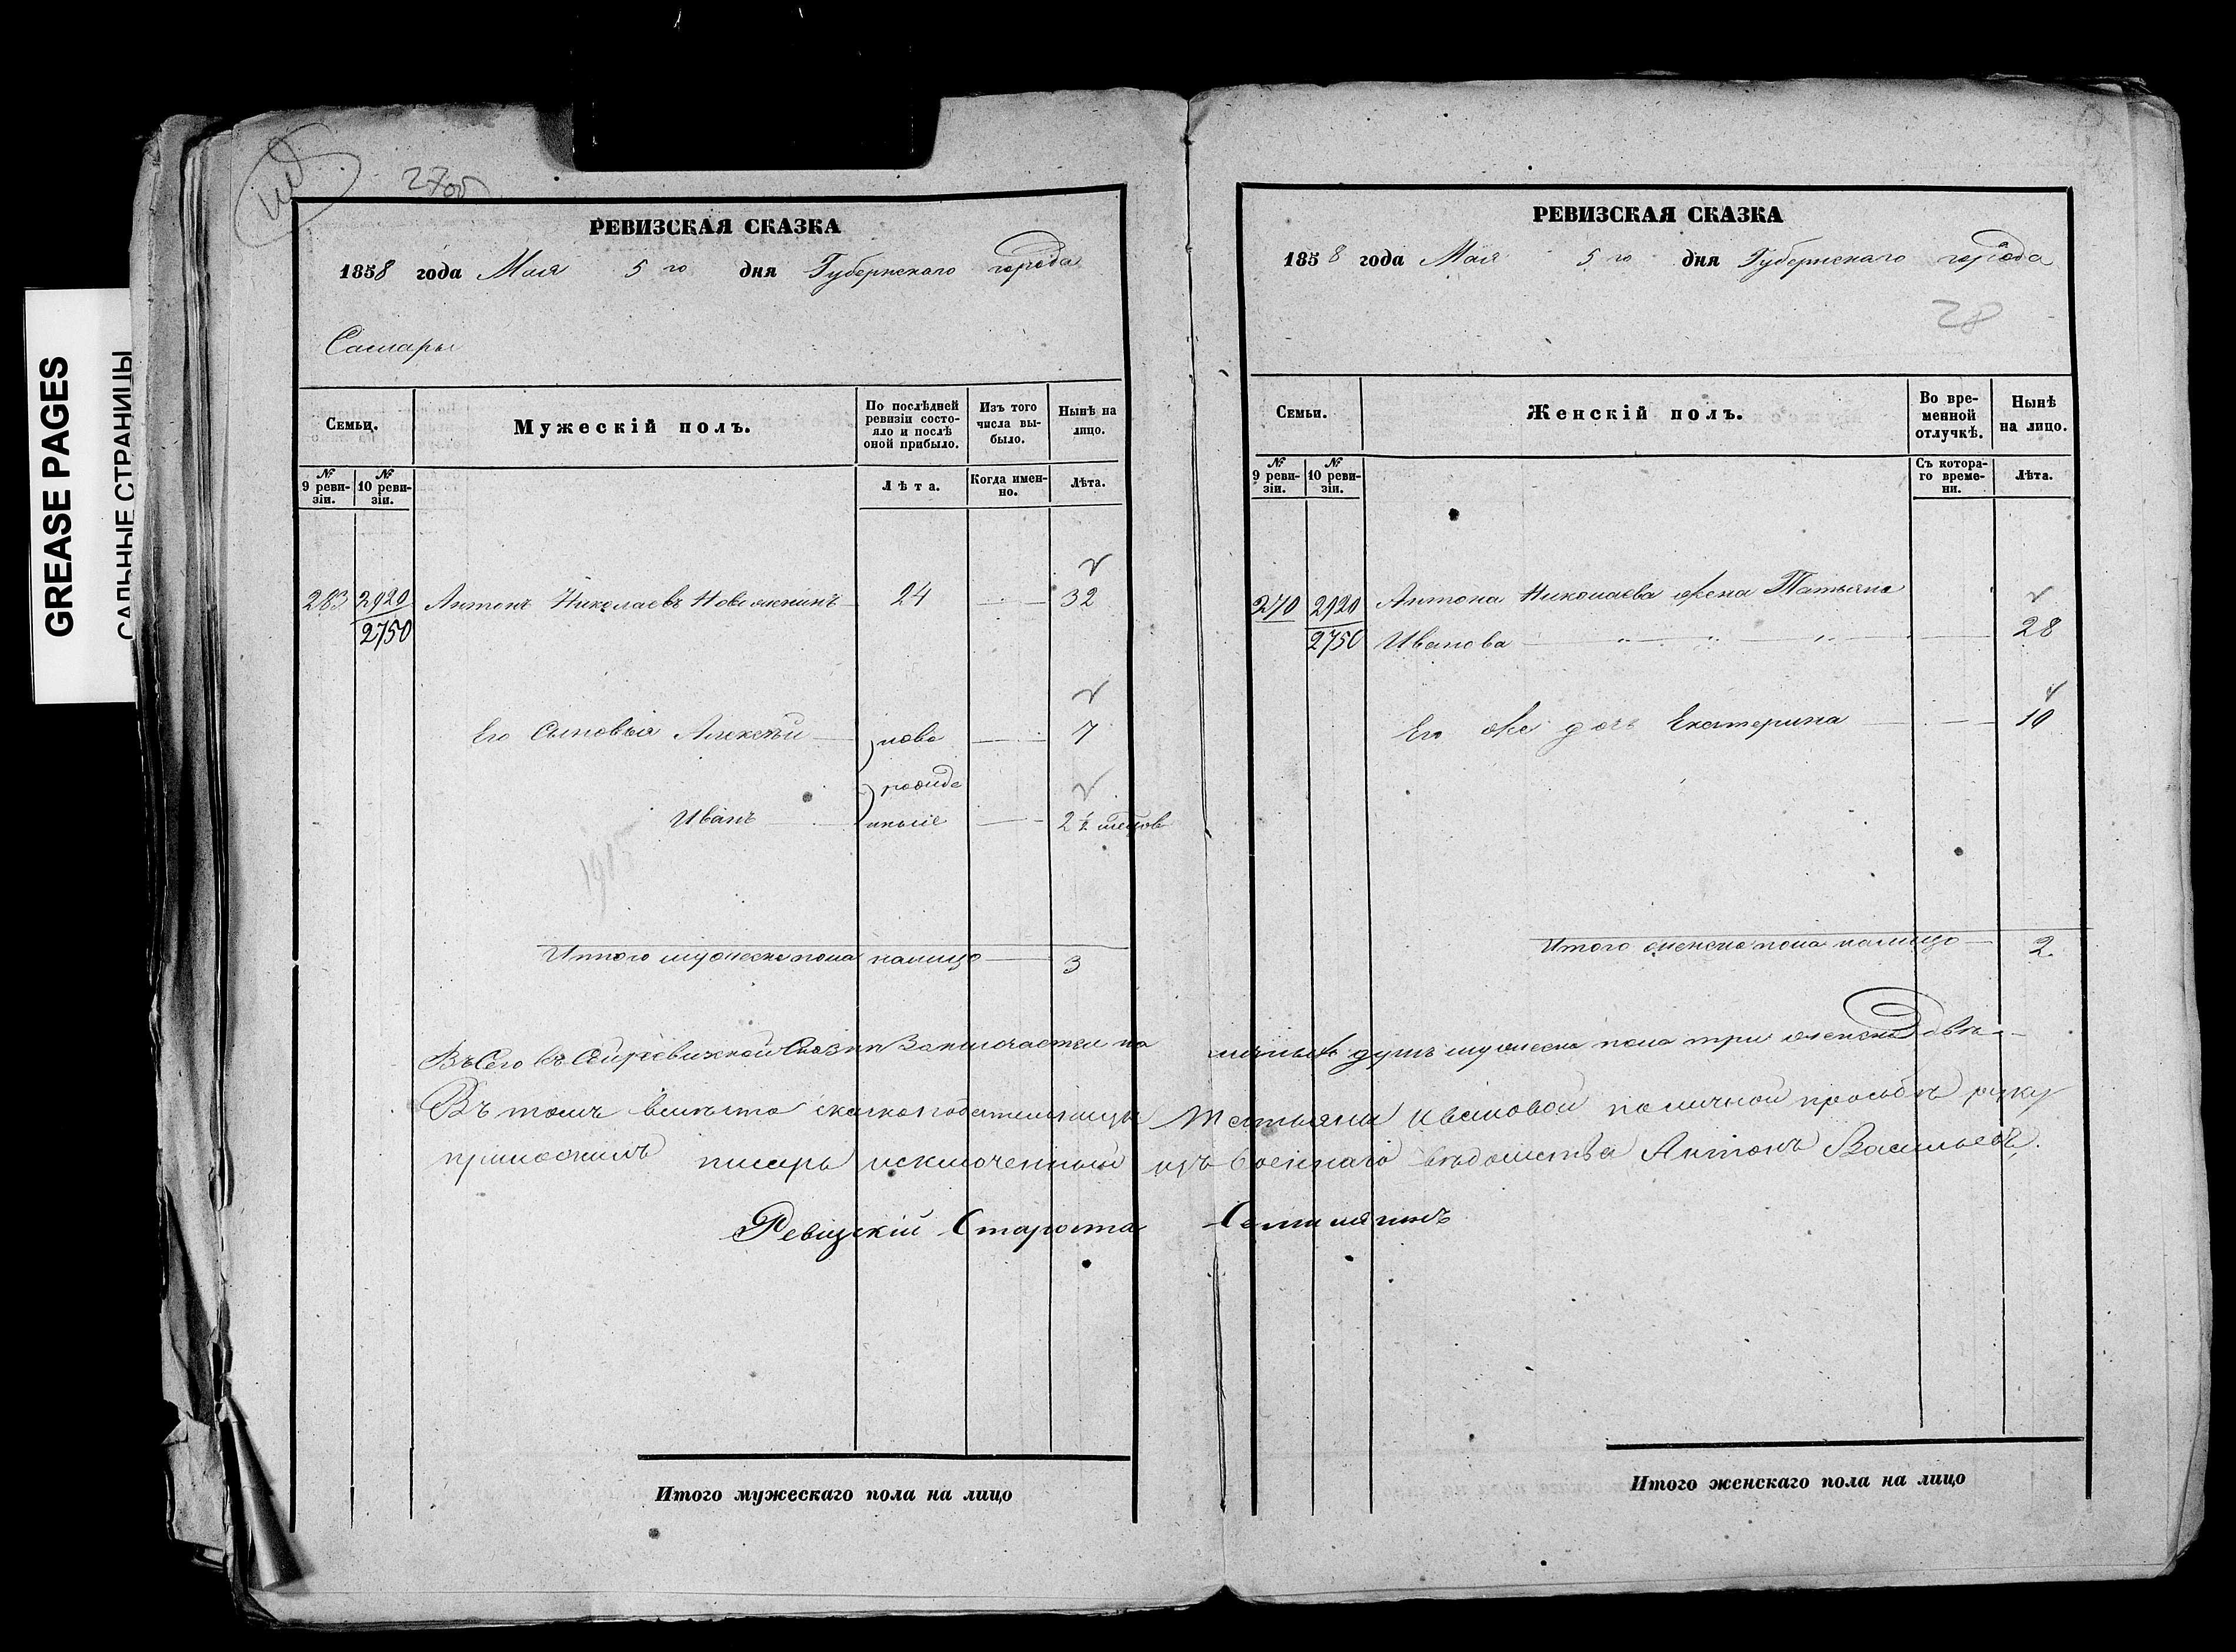 GREASE PAGES
САЛЬНЫЕ СТРАНИЦЫ
РЕВИЗСКАЯ СКАЗКА
1858 года Мая 5го дня Губернскаго города
Самары
Семьи.
Мужескій полъ.
По послѣдней ревизіи состояло и послѣ оной прибыло.
Изъ того числа выбыло.
Нынѣ на лицо.
№ 9 ревизіи.
№ 10 ревизіи.
Лѣта.
Когда именно.
Лѣта.
283 2920 Антонъ Николаевъ 24 32
2750
Его Сыновья Алексѣй ново 7
рожде
Иванъ нные 2½ месецов
Итого мужеска пола налицо 3
РЕВИЗСКАЯ СКАЗКА
1858 года Мая 5го дня Губернскаго города
28
Семьи.
Женскій полъ.
Во временной отлучкѣ.
Нынѣ на лицо.
№ 9 ревизіи.
№ 10 ревизіи.
Съ котораго времени.
Лѣта.
270 2920 Антона Николаева жена Татьяна
2750 Иванова 28
Его же дочь Екатерина 10
Итого женска пола налицо 2
Въ Сего въ Сей ревижской Сказки Заключается наличныхъ душъ мужеска пола три женска Двѣ
Въ томъ вместо сказкоподательницы Татьяны Ивановой по личной просьбѣ руку
приложилъ писарь исключенный изъ военнаго вѣдомства Антонъ Васильевъ.
Ревизскій Староста
Итого мужескаго пола на лицо
Итого женскаго пола на лицо